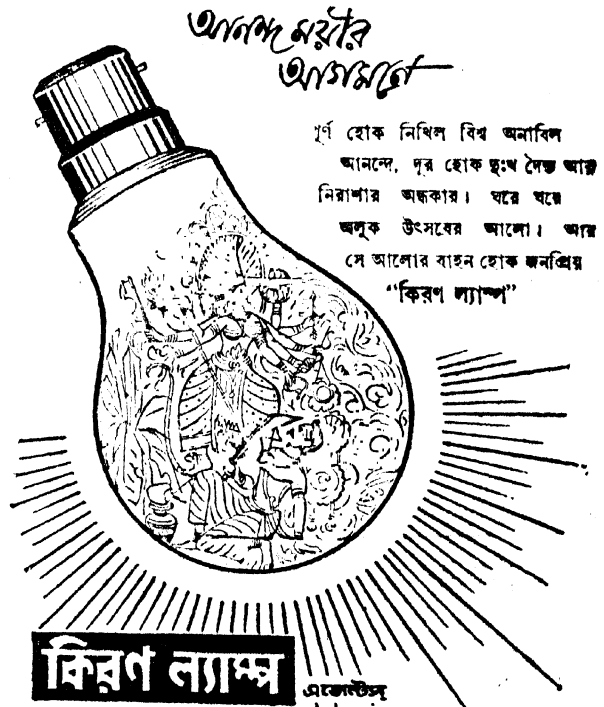 আনন্দময়ীর
আগমনে
পূর্ণ হোক নিখিল বিশ্ব অনাবিল
আনন্দে, দূর হোক দুঃখ দৈন্য আর
নিরাশার অন্ধকার। ঘরে ঘরে
জ্বলুক উৎসবের আলো। আর
সে আলোর বাহন হোক জনপ্রিয়
“কিরণ ল্যাম্প”
কিরণ ল্যাম্প
এজেন্টস্